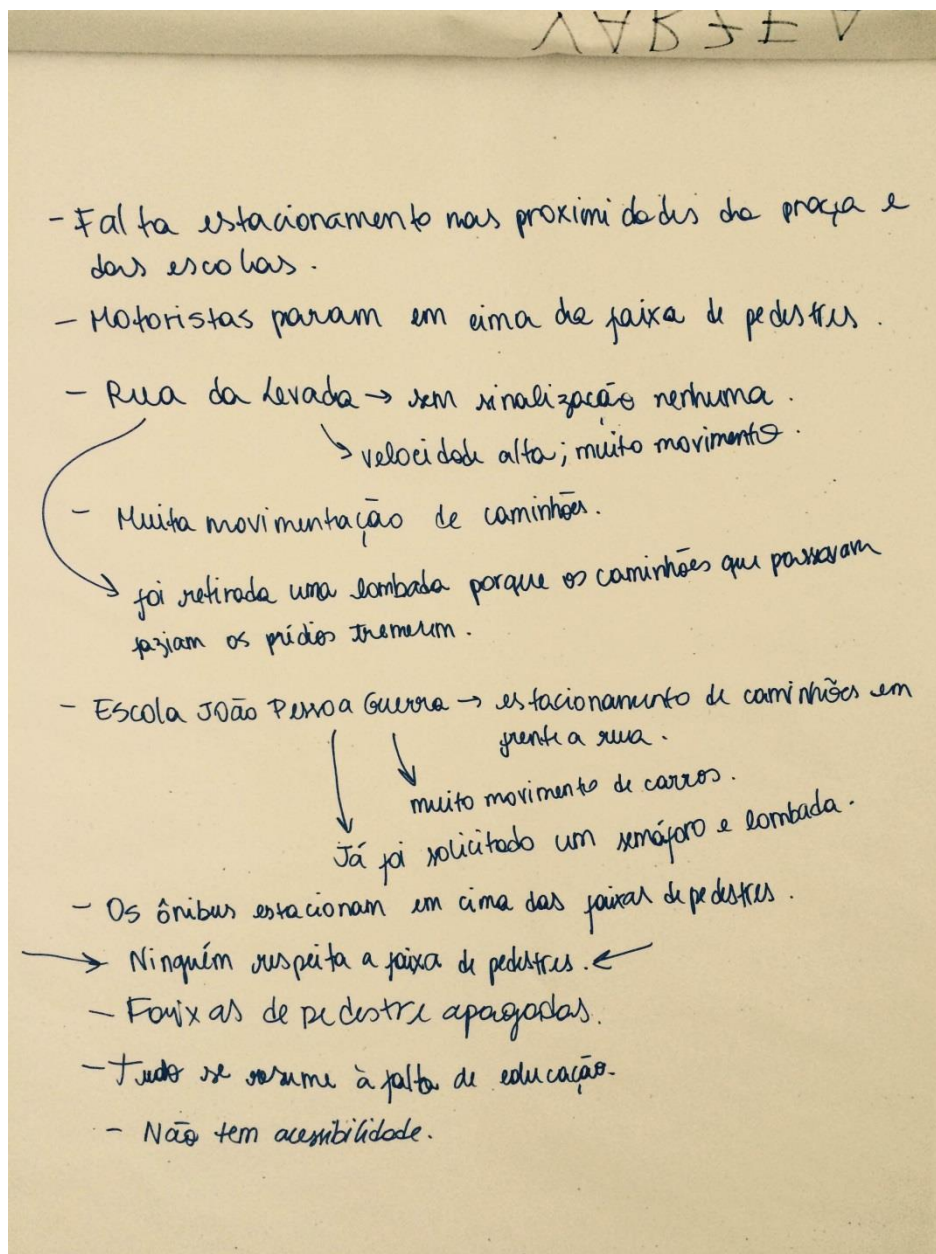 - Falta estacionamento nas proximidades da praça e
das escolas.
- Motoristas param em cima da faixa de pedestres.
- Rua da Levada → sem sinalização nenhuma.
velocidade alta; muito movimento.
- Muita movimentação de caminhões.
foi retirada uma lombada porque os caminhões que passavam
faziam os prédios tremerem.
- Escola João Pessoa Guerra → estacionamento de caminhões em
frente a rua.
muito movimento de carros.
Já foi solicitado um semáforo e lombada.
- Os ônibus estacionam em cima das faixas de pedestres.
→ Ninguém respeita a faixa de pedestres. ←
- Faixas de pedestre apagadas.
- Tudo se resume à falta de educação.
- Não tem acessibilidade.